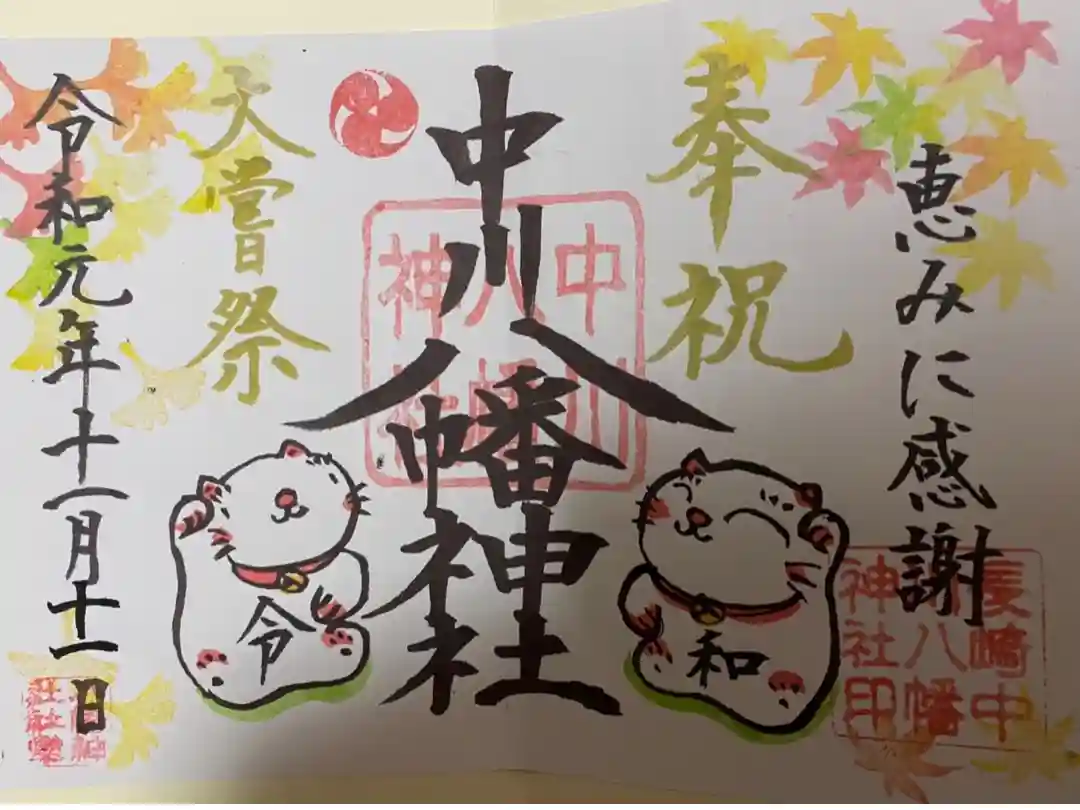 恵みに感謝
奉祝
中川八幡神社
大嘗祭
令和元年十一月十一日
和
令
中川
八幡
神社
長崎中
川八幡
神社印